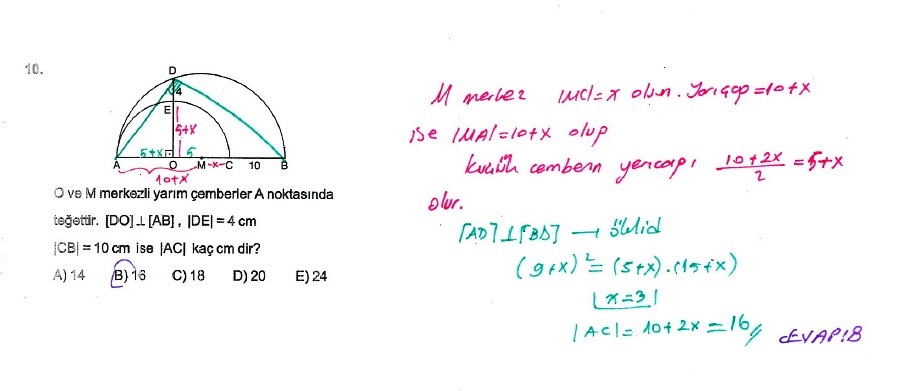 10.
D
4
E
5+x
5+x
5
A
O
M
-x-
C
10
B
10+x
O ve M merkezli yarım çemberler A noktasında
teğettir. [DO]⊥[AB], |DE|=4 cm
|CB|=10 cm ise |AC| kaç cm dir?
A) 14 B) 16 C) 18 D) 20 E) 24
M merkez |MC|=x olsun. Yarıçap=10+x
ise |MA|=10+x olup
küçük çemberin yarıçapı (10+2x)/2 = 5+x
olur.
[AD]⊥[BD] → öklid
(9+x)²=(5+x).(15+x)
x=3
|AC|=10+2x=16//
CEVAP:B